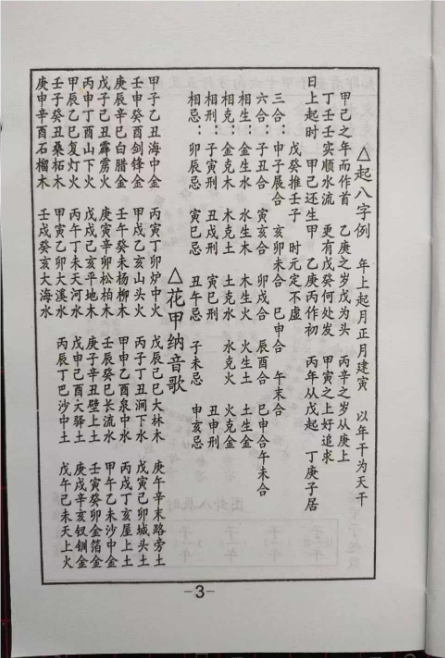 △起八字例 年上起月正月建寅 以年干为天干
甲己之年而作首 乙庚之岁戊为头 丙辛之岁从庚上
丁壬壬实顺水流 更有戊癸何处发 甲寅之上好追求
日上起时 甲己还生甲 乙庚丙作初 丙年从戊起 丁庚子居
戊癸推壬子 时元定不虚
三合：申子展合 亥卯未合 巳申合 午末合
六合：子丑合 寅亥合 卯戌合 辰酉合 巳申合午未合
相生：金生水 水生木 木生火 火生土 土生金
相克：金克木 木克土 土克水 水克火 火克金
相刑：子寅刑 寅巳刑 丑申刑
相忌：卯辰忌 寅巳忌 丑午忌 子未忌 申亥忌
△花甲纳音歌
甲子乙丑海中金 丙寅丁卯炉中火 戊辰己巳大林木 庚午辛末路旁土
壬申癸酉剑锋金 甲戌乙亥山头火 丙子丁丑涧下水 戊寅己卯城头土
庚辰辛巳白腊金 壬午癸未杨柳木 甲申乙酉泉中水 丙戌丁亥屋上土
戊子己丑霹雳火 庚寅辛卯松柏木 壬辰癸巳长流水 甲午乙未沙中金
丙申丁酉山下火 戊戌己亥平地木 庚子辛丑壁上土 壬寅癸卯金箔金
甲辰乙巳复灯火 丙午丁未天河水 戊申己酉大驿土 庚戌辛亥钗钏金
壬子癸丑桑柘木 甲寅乙卯大溪水 丙辰丁巳沙中土 戊午己未天上火
庚申辛酉石榴木 壬戌癸亥大海水
-3-